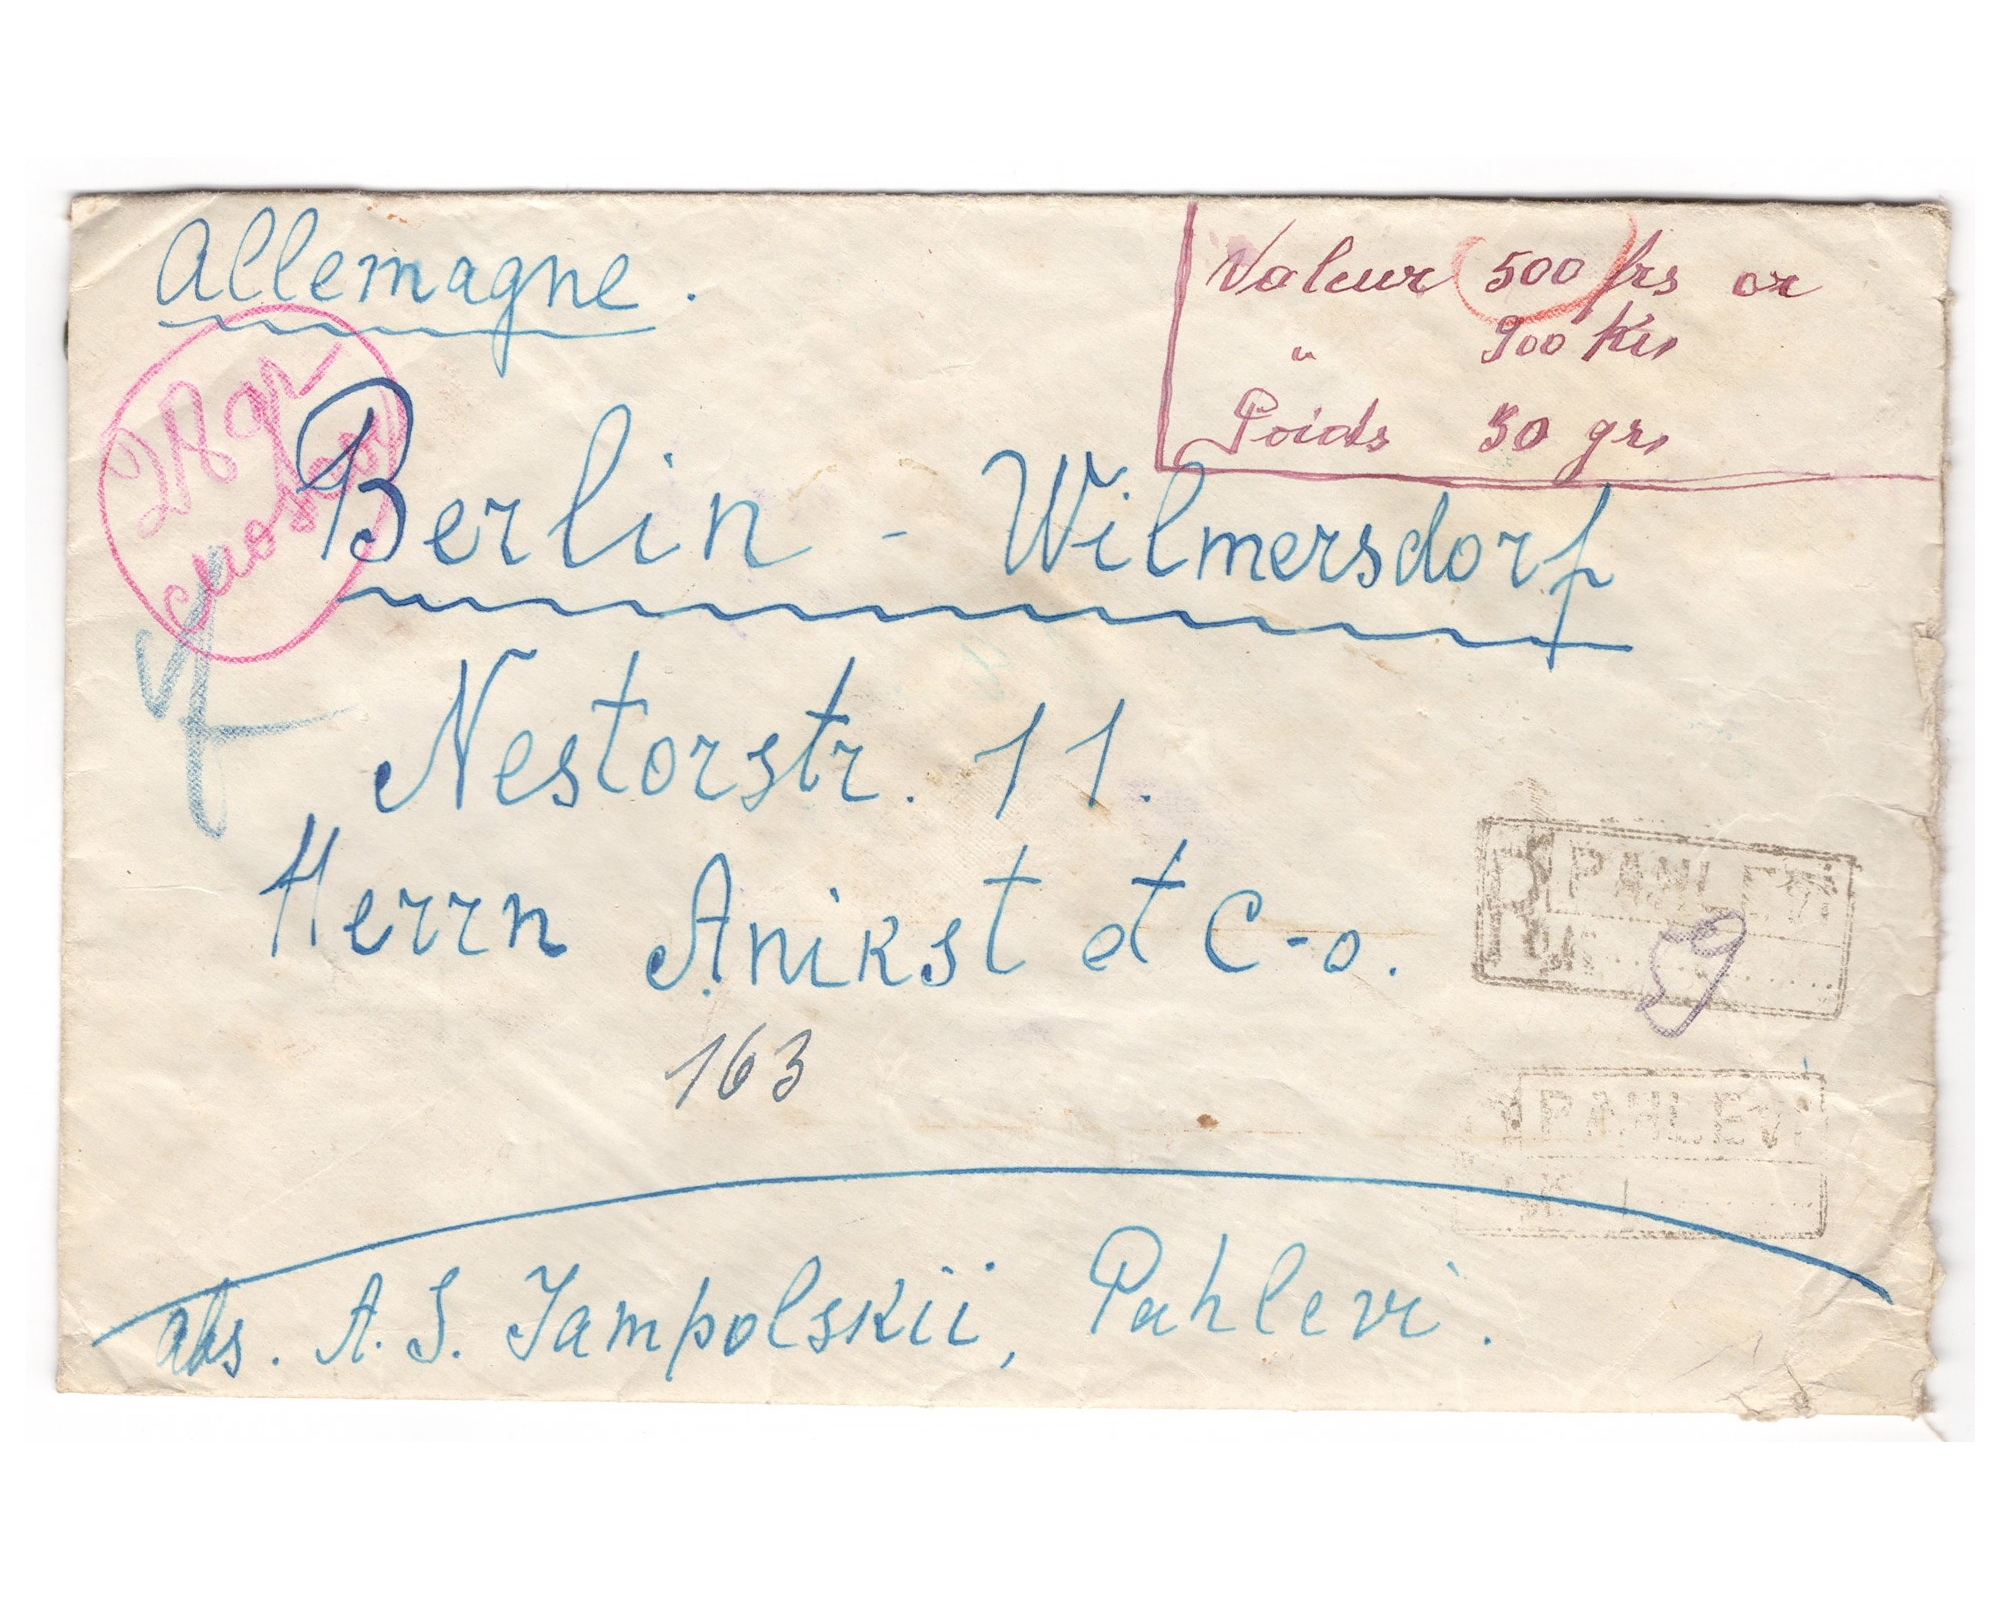 Allemagne.
Valeur 500 frs or
" 900 Krs
Poids 30 grs
28 gr
Berlin - Wilmersdorf
Nestorstr. 11.
Herrn Anikst et C-o.
163
R PAHLEVI
№ 59
V PAHLEVI
№ 1
abs. A. S. Jampolskii, Pahlevi.